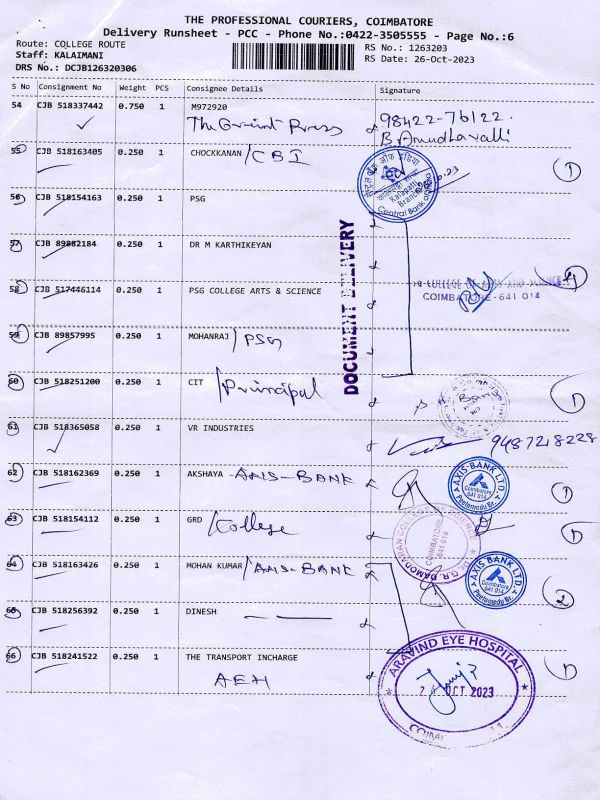 THE PROFESSIONAL COURIERS, COIMBATORE
Delivery Runsheet - PCC - Phone No.:0422-3505555 - Page No.:6
Route: COLLEGE ROUTE
Staff: KALAIMANI
DRS No.: DCJB126320306
RS No.: 1263203
RS Date: 26-Oct-2023
S No Consignment No Weight PCS Consignee Details Signature
54 CJB 518337442 0.750 1 M972920 98422-76122.
Press
55 CJB 518163405 0.250 1 CHOCKKANAN /CBI 1
Central Bank of
56 CJB 518154163 0.250 1 PSG
DOCUMENT DELIVERY
57 CJB 89882184 0.250 1 DR M KARTHIKEYAN
58 CJB 517446114 0.250 1 PSG COLLEGE ARTS & SCIENCE COLLEGE OF ARTS AND SCIENCE 4
COIMBATORE-641 014
59 CJB 89857995 0.250 1 MOHANRAJ /PSG
60 CJB 518251200 0.250 1 CIT /Principal 1
61 CJB 518365058 0.250 1 VR INDUSTRIES 9487218228
62 CJB 518162369 0.250 1 AKSHAYA - AXIS-BANK 1
AXIS BANK LTD. Coimbatore 641 014 Peelamedu Br.
63 CJB 518154112 0.250 1 GRD /College 1
DR. G.R. DAMODARAN COLLEGE OF SCIENCE COIMBATORE 641 014
64 CJB 518163426 0.250 1 MOHAN KUMAR /AXIS-BANK 2
AXIS BANK LTD. Coimbatore 641 014 Peelamedu Br.
65 CJB 518256392 0.250 1 DINESH
66 CJB 518241522 0.250 1 THE TRANSPORT INCHARGE 1
AEH
ARAVIND EYE HOSPITAL
OCT 2023